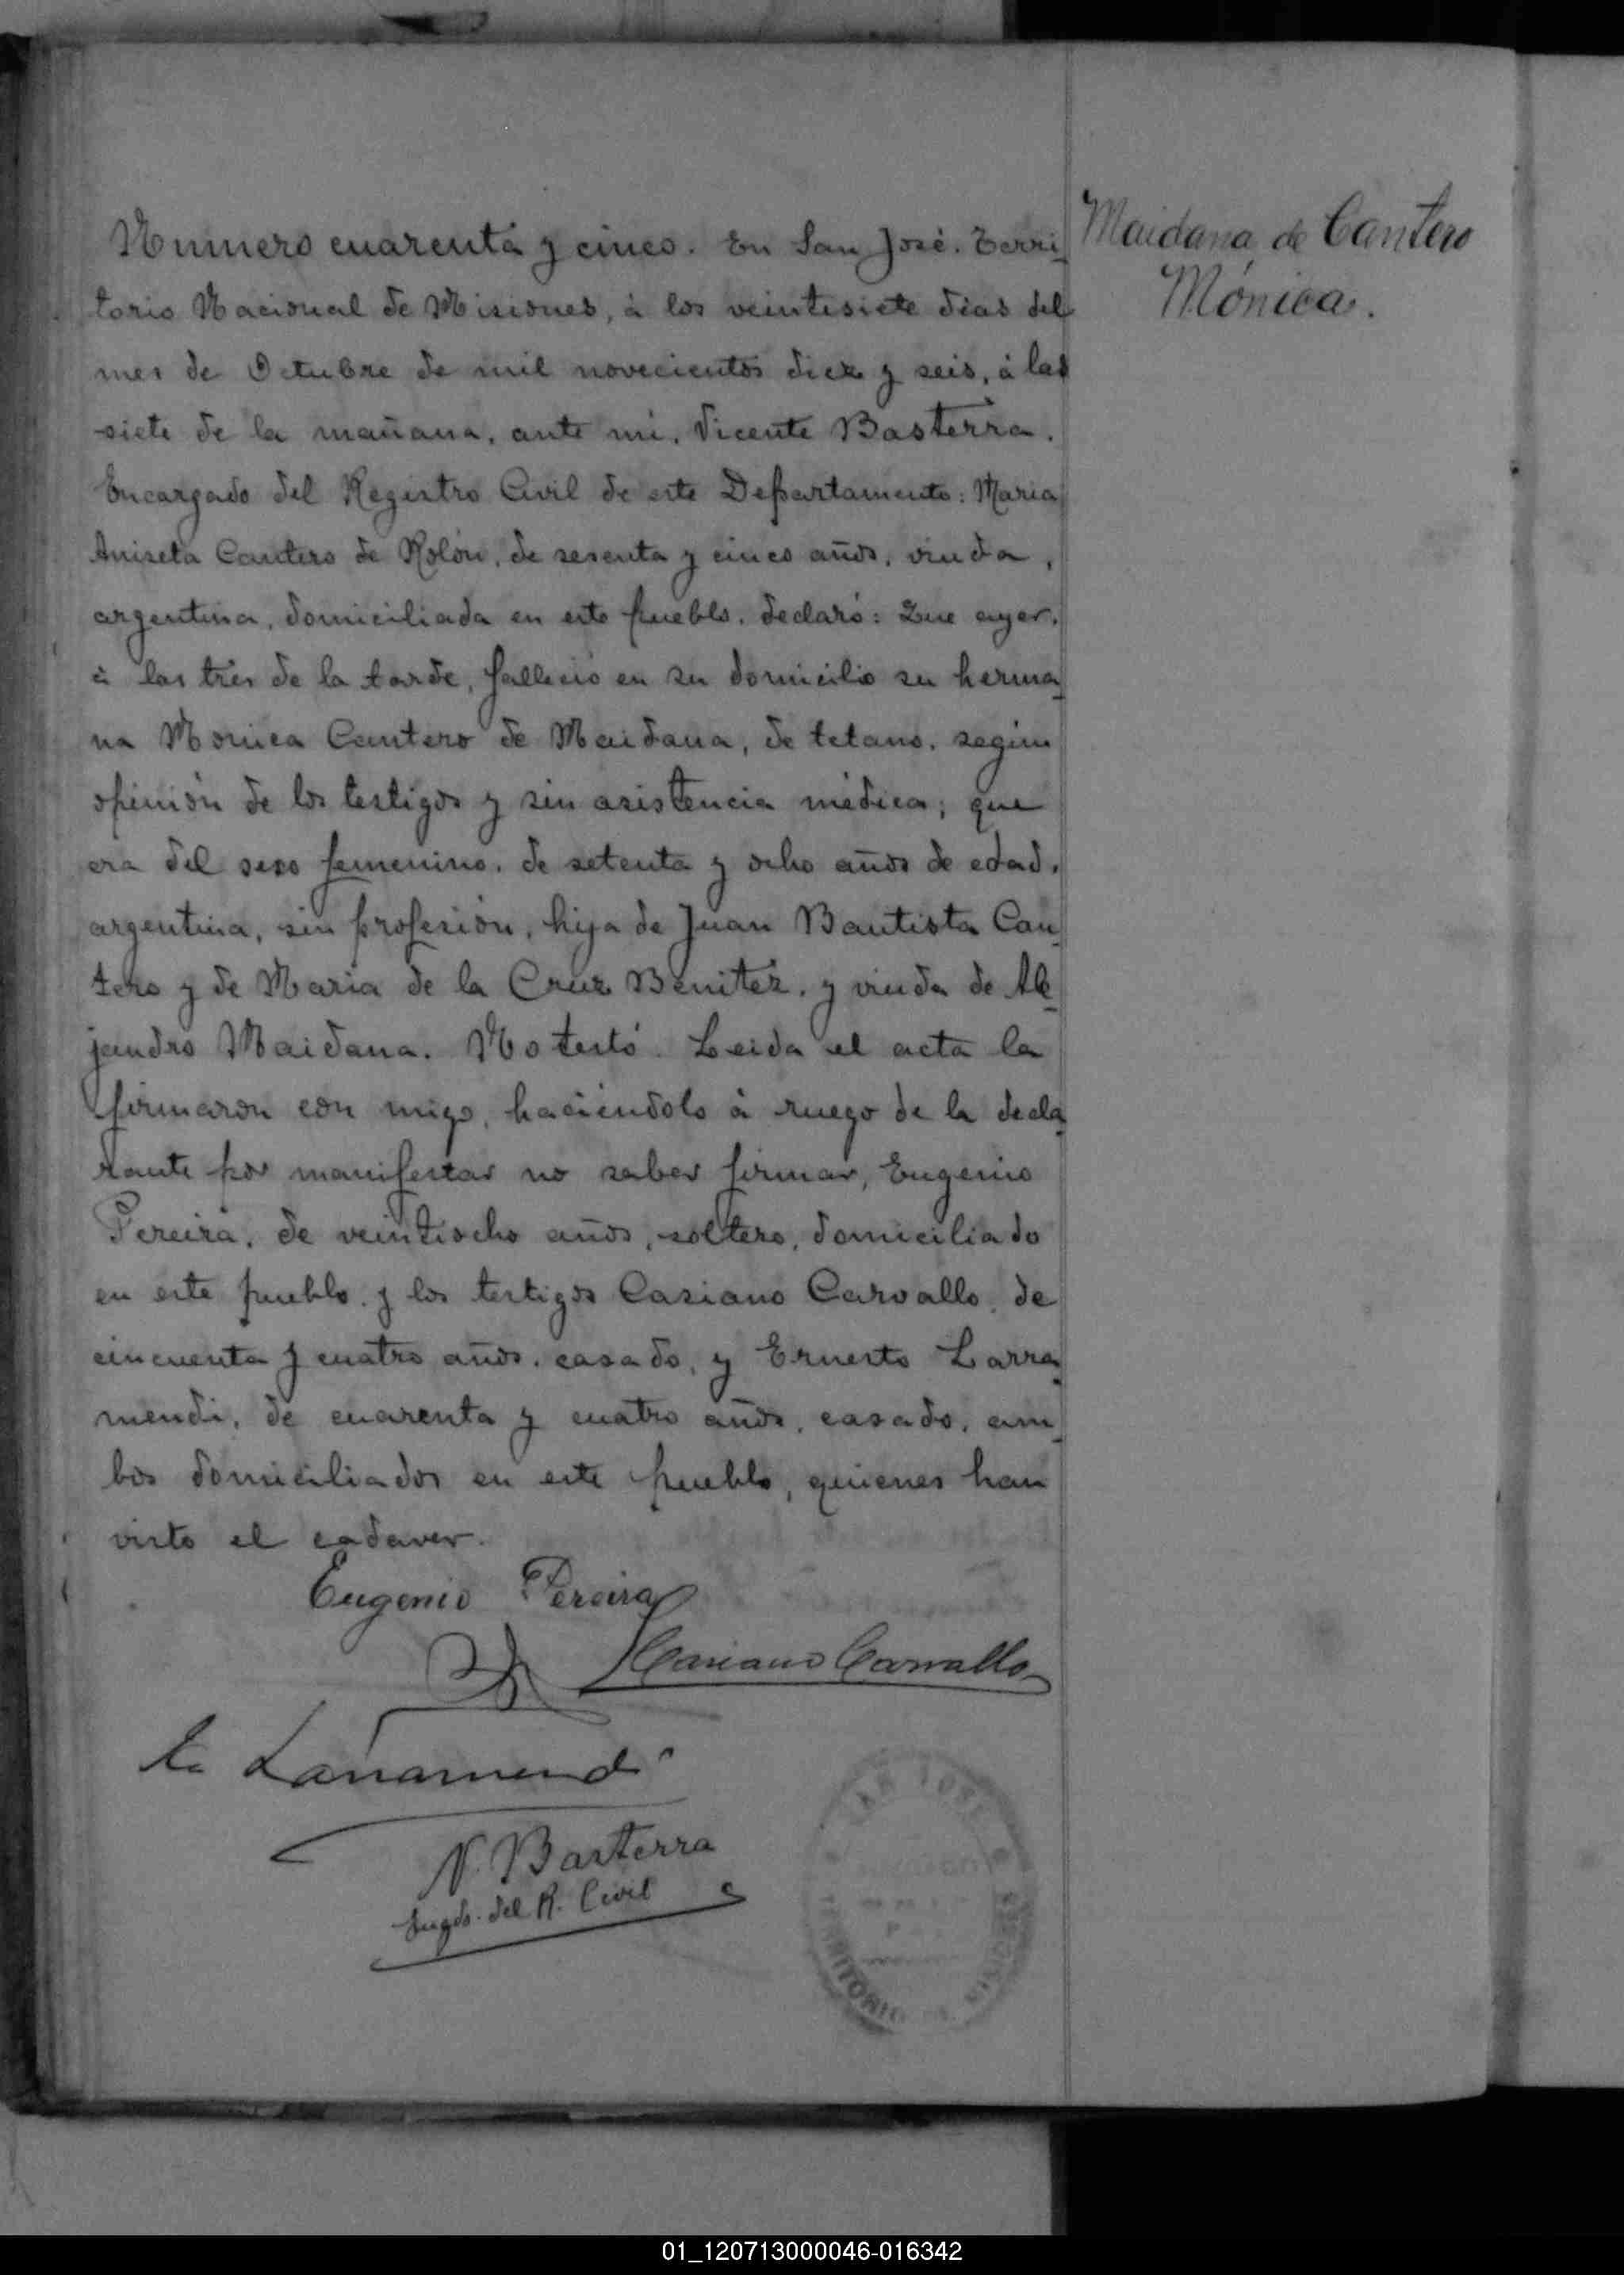 Numero cuarenta y cinco. En San José. Terri_
torio Nacional de Misiones, à los veintisiete dias del
mes de Octubre de mil novecientos diez y seis, à las
siete de la mañana, ante mi, Vicente Basterra.
Encargado del Registro Civil de este Departamento: Maria
Aniseta Cantero de Rolón, de sesenta y cinco años, viuda,
argentina, domiciliada en este pueblo, declaró: Que ayer,
à las tres de la tarde, falleció en su domicilio su herma_
na Monica Cantero de Maidana, de tetano, según
opinión de los testigos y sin asistencia médica; que
era del sexo femenino, de setenta y ocho años de edad,
argentina, sin profesión, hija de Juan Bautista Can_
tero y de Maria de la Cruz Benitez, y viuda de Ale_
jandro Maidana. No testó. Leida el acta la
firmaron con migo, haciéndolo à ruego de la decla_
rante por manifestar no saber firmar, Eugenio
Pereira, de veintiocho años, soltero, domiciliado
en este pueblo y los testigos Casiano Carvallo, de
cincuenta y cuatro años, casado, y Ernesto Larra_
mendi, de cuarenta y cuatro años, casado, am_
bos domiciliados en este pueblo, quienes han
visto el cadaver.
Eugenio Pereira
Casiano Carvallo
Larramendi
V. Basterra
Engdo. del R. Civil
Maidana de Cantero
Mónica.
SAN JOSE
TERRITORIO DE MISIONES
01_120713000046-016342